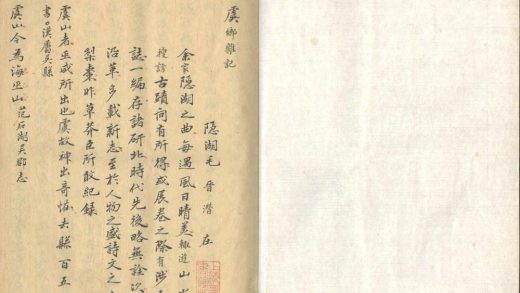 虞鄉雜記
隐湖毛晉潛在
余家隐湖之曲每遇風日晴美輙遊山水
搜訪古蹟间有所得或展卷之際有涉于
誌一编存諸研北時代先後略無詮次
沿革多載新志至於人物之盛詩文之
梨棗昨草莽臣所敢紀録
虞山者巫咸所出也虞故神出奇怪去縣百五
書曰漢舊吴縣
虞山今為海巫山范石湖吴郡志